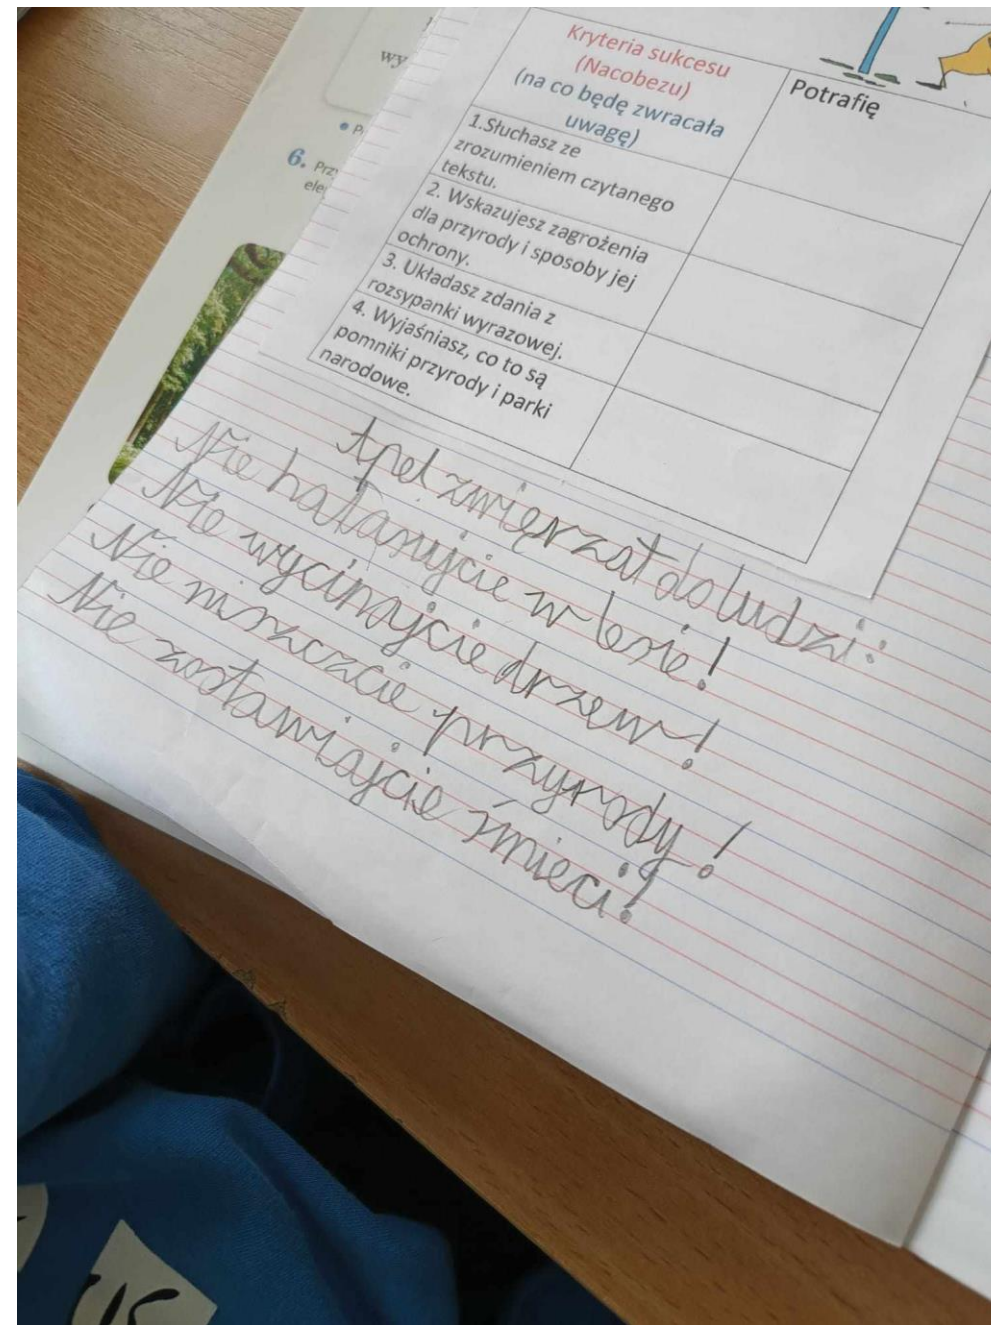 wy
6. Prz
ele
Kryteria sukcesu
(Nacobezu)
(na co będę zwracała
uwagę)
Potrafię
1.Słuchasz ze
zrozumieniem czytanego
tekstu.
2. Wskazujesz zagrożenia
dla przyrody i sposoby jej
ochrony.
3. Układasz zdania z
rozsypanki wyrazowej.
4. Wyjaśniasz, co to są
pomniki przyrody i parki
narodowe.
Apel zwięrzat do ludzi:
Nie hałasujcie w lesie!
Nie wycinajcie drzew!
Nie niszczcie przyrody!
Nie zostawiajcie śmieci!